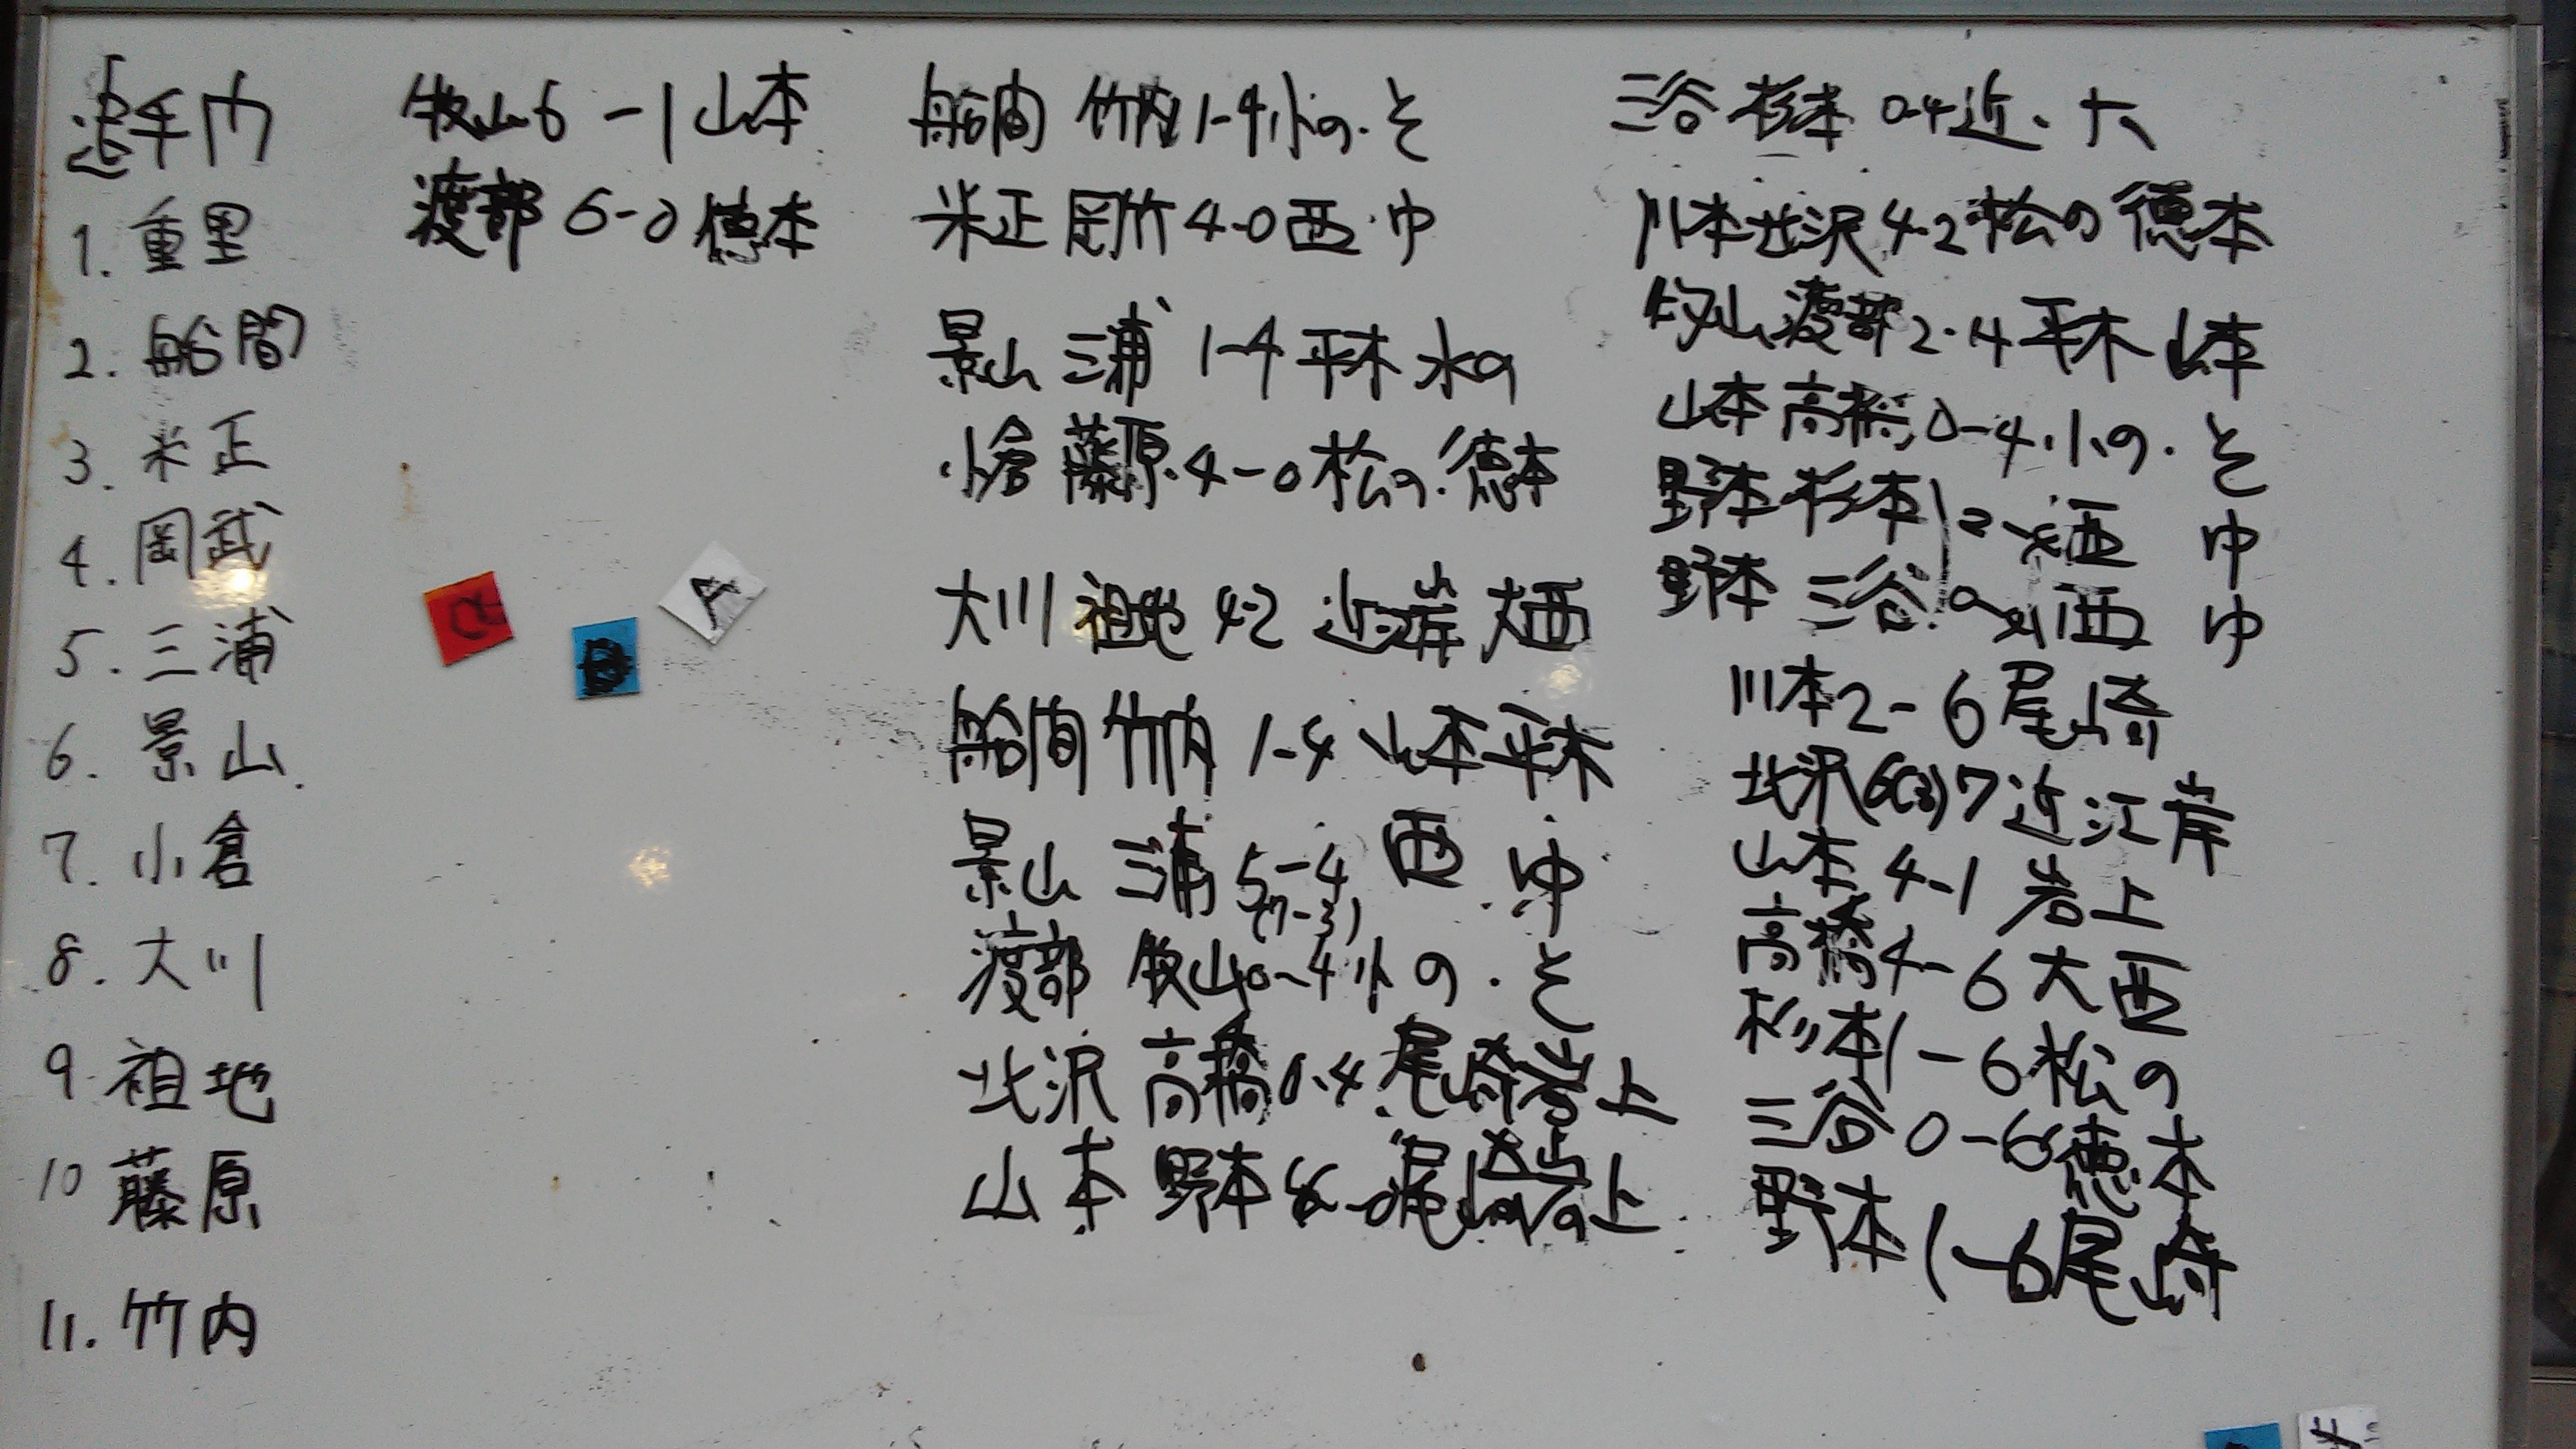 追手門
1. 重里
2. 船間
3. 米正
4. 岡武
5. 三浦
6. 景山
7. 小倉
8. 大川
9. 祖地
10 藤原
11. 竹内
牧山 6-1 山本
渡部 6-0 徳本
C
B
A
船間 竹内 1-4 小の・そ
米正 岡竹 4-0 西・中
景山 三浦 1-4 平木 水の
小倉 藤原 4-0 松の・徳本
大川 祖地 4-2 近江岸 大西
船間 竹内 1-4 山本 平木
景山 三浦 5-4 西 中
(7-3)
渡部 牧山 0-4 小の・そ
北沢 高橋 0-4 尾崎 岩上
山本 野本 尾崎 岩上
三谷 杉本 0-4 近・大
川本 北沢 4-2 松の 徳本
牧山 渡部 2-4 平木 山本
山本 高橋 0-4 小の・そ
野本 杉本 2-4 西 中
野本 三谷 0-4 西 中
川本 2-6 尾崎
北沢 6(3)7 近江岸
山本 4-1 岩上
高橋 4-6 大西
杉本 1-6 松の
三谷 0-6 徳本
野本 1-6 尾崎